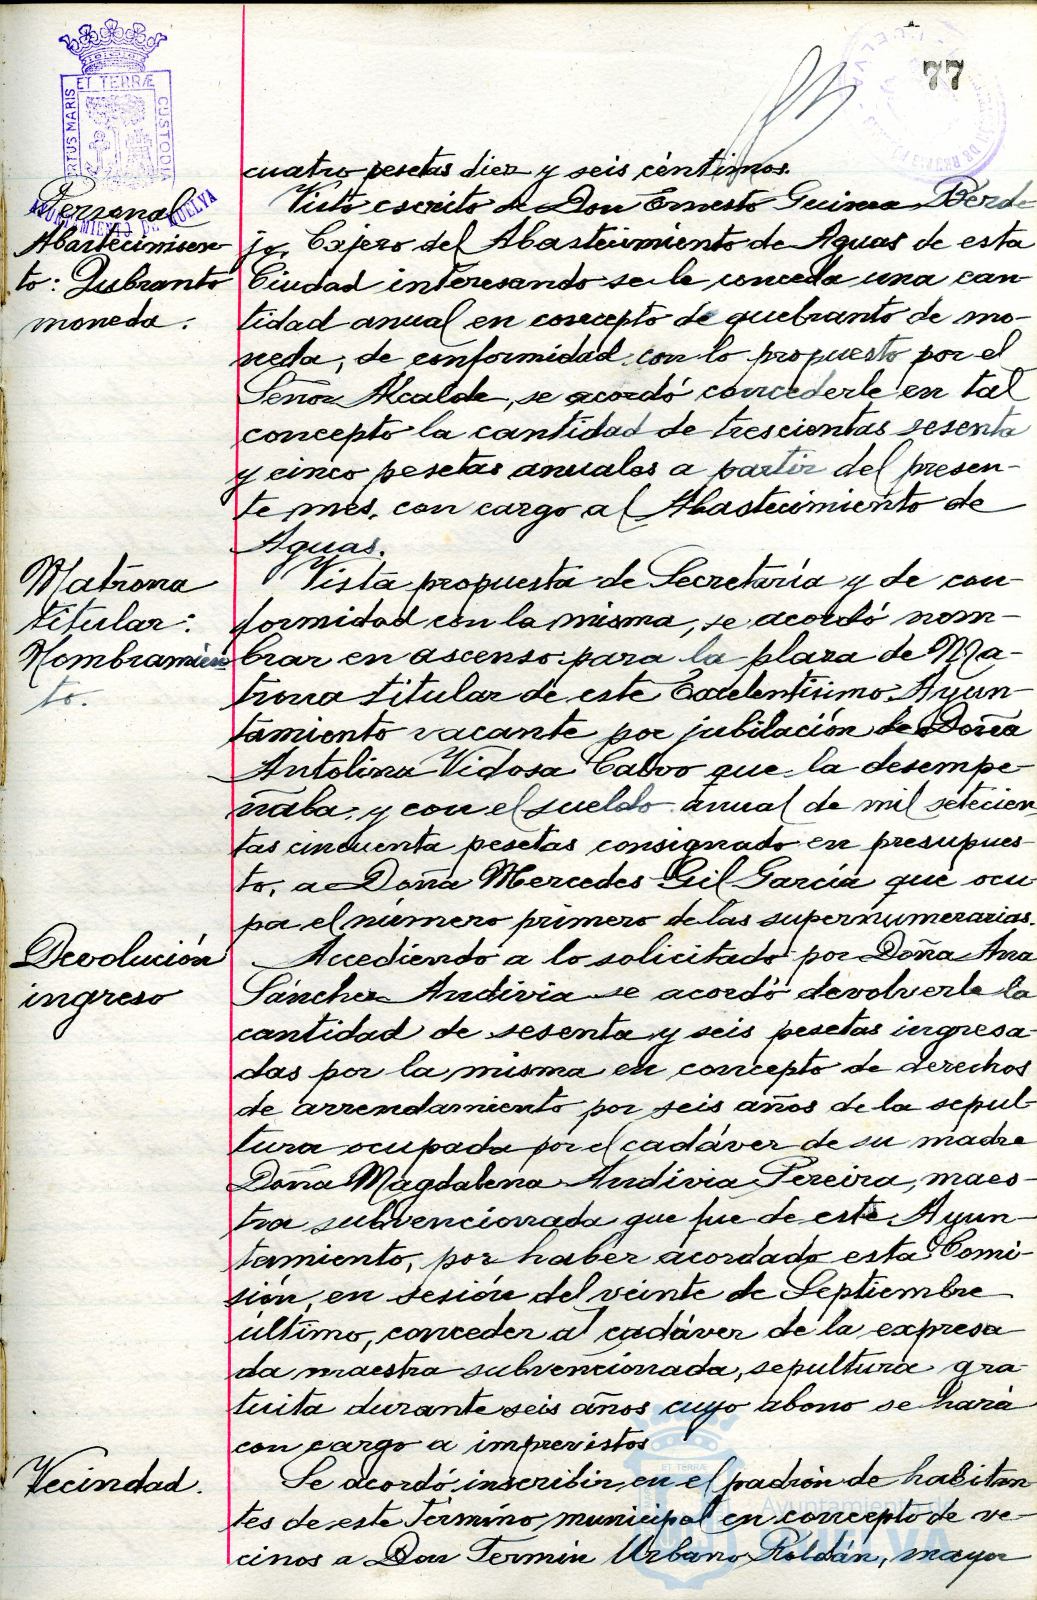 77
PORTUS MARIS ET TERRÆ CUSTODIA
AYUNTAMIENTO DE HUELVA
cuatro pesetas diez y seis céntimos.
Personal
Abastecimien
to: Qubranto
moneda.
Visto escrito de Don Ernesto Guimea Berde
jo, Cajero del Abastecimiento de Aguas de esta
Ciudad interesando se le conceda una can
tidad anual en concepto de quebranto de mo-
neda, de conformidad con lo propuesto por el
Señor Alcalde, se acordó concederle en tal
concepto la cantidad de trescientas sesenta
y cinco pesetas anuales a partir del presen-
te mes, con cargo al Abastecimiento de
Aguas.
Matrona
titular:
Nombramien
to.
Vista propuesta de Secretaría y de con-
formidad con la misma, se acordó nom-
brar en ascenso para la plaza de Ma-
trona titular de este Excelentísimo Ayun-
tamiento vacante por jubilación de Doña
Antolina Vidosa Calvo que la desempe-
ñaba, y con el sueldo anual de mil setecien
tas cincuenta pesetas consignado en presupues-
to, a Doña Mercedes Gil García que ocu
pa el número primero de las supernumerarias.
Devolución
ingreso
Accediendo a lo solicitado por Doña Ana
Sánchez Andivia se acordó devolverle la
cantidad de sesenta y seis pesetas ingresa
das por la misma en concepto de derechos
de arrendamiento por seis años de la sepul-
tura ocupada por el cadáver de su madre
Doña Magdalena Andivia Pereira, maes-
tra subvencionada que fue de este Ayun-
tamiento, por haber acordado esta Comi-
sión, en sesión del veinte de Septiembre
último, conceder al cadáver de la expresa
da maestra subvencionada, sepultura gra
tuita durante seis años cuyo abono se hará
con cargo a imprevistos
Vecindad.
Se acordó inscribir en el padrón de habitan
tes de este Término municipal en concepto de ve-
cinos a Don Fermin Urbano Roldán, mayor
ET TERRÆ
Ayuntamiento de
HUELVA